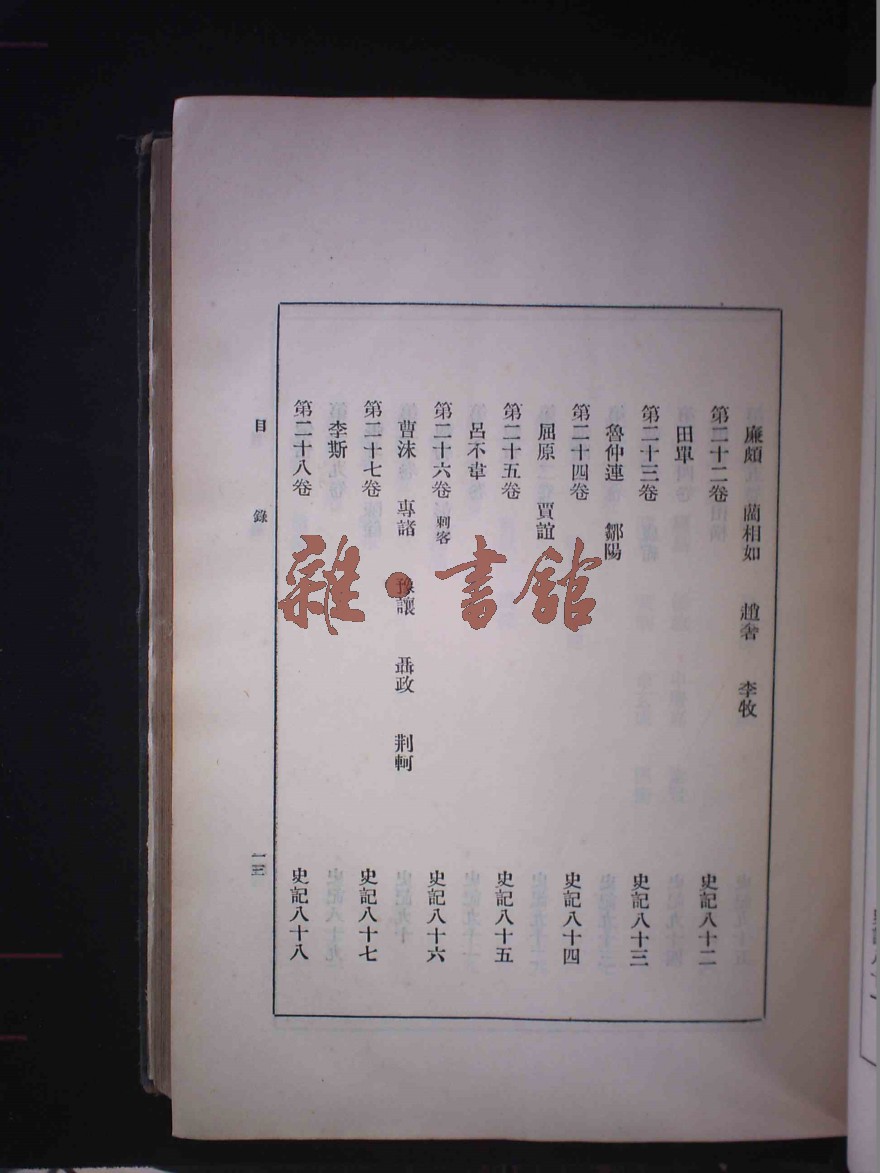 廉頗 藺相如 趙奢 李牧
第二十二卷 史記八十二
田單
第二十三卷 史記八十三
魯仲連 鄒陽
第二十四卷 史記八十四
屈原 賈誼
第二十五卷 史記八十五
呂不韋
第二十六卷 刺客 史記八十六
曹沫 專諸 豫讓 聶政 荆軻
第二十七卷 史記八十七
李斯
第二十八卷 史記八十八
目錄 一三
雜·書館